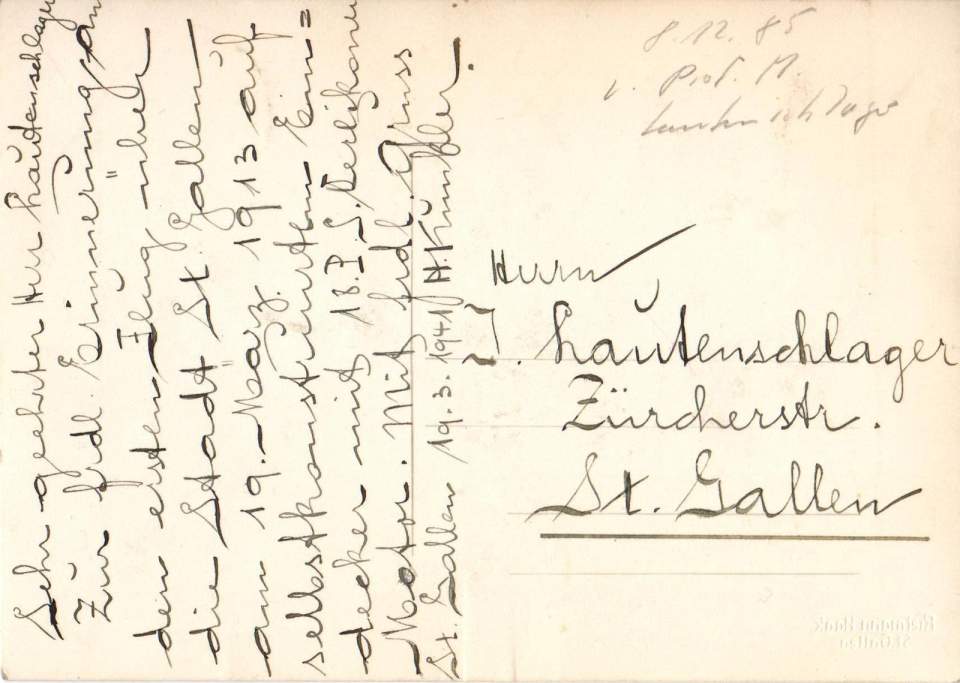 Sehr geehrter Herr Lautenschlager
Zur frdl. Erinnerung an
den ersten Flug über
die Stadt St. Gallen
am 19. März 1913 auf
selbstkonstruirtem Ein=
decker mit 18.P.S. Oerlikon
Motor. Mit frdl. Gruss
St. Gallen 19.3.1941 H. Kunkler.
8.12.85
v. Prof. M.
Lautenschlager
Herrn
J. Lautenschlager
Zürcherstr.
St. Gallen
St. Gallen